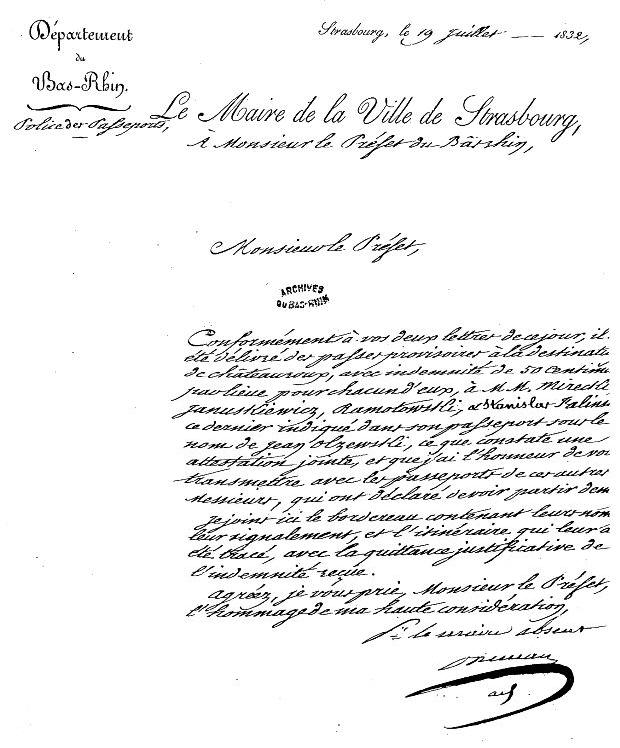 Département
du
Bas-Rhin.
Police des Passeports,
Strasbourg, le 19 juillet — 1832,
Le Maire de la Ville de Strasbourg,
À Monsieur le Préfet du Bas rhin,
Monsieur le Préfet,
ARCHIVES
DU BAS-RHIN
Conformément à vos deux lettres de ce jour, il
été délivré des passes provisoires à la destinati
de châteauroux, avec indemnité de 50 centim
par lieue pour chacun d'eux, à M.M. Mirecki
Januskiewicz, Ramotowski, et Stanislas Falins
ce dernier indiqué dans son passeport sous le
nom de Jean Olzewski, ce que constate une
attestation jointe, et que j'ai l'honneur de vou
transmettre avec les passeports de ces autres
Messieurs, qui ont déclaré devoir partir dem
Je joins ici le bordereau contenant leurs nom
leur signalement, et l'itinéraire qui leur a
été tracé, avec la quittance justificative de
l'indemnité reçue.
agréez, je vous prie, Monsieur le Préfet,
l'hommage de ma haute considération,
le maire absent